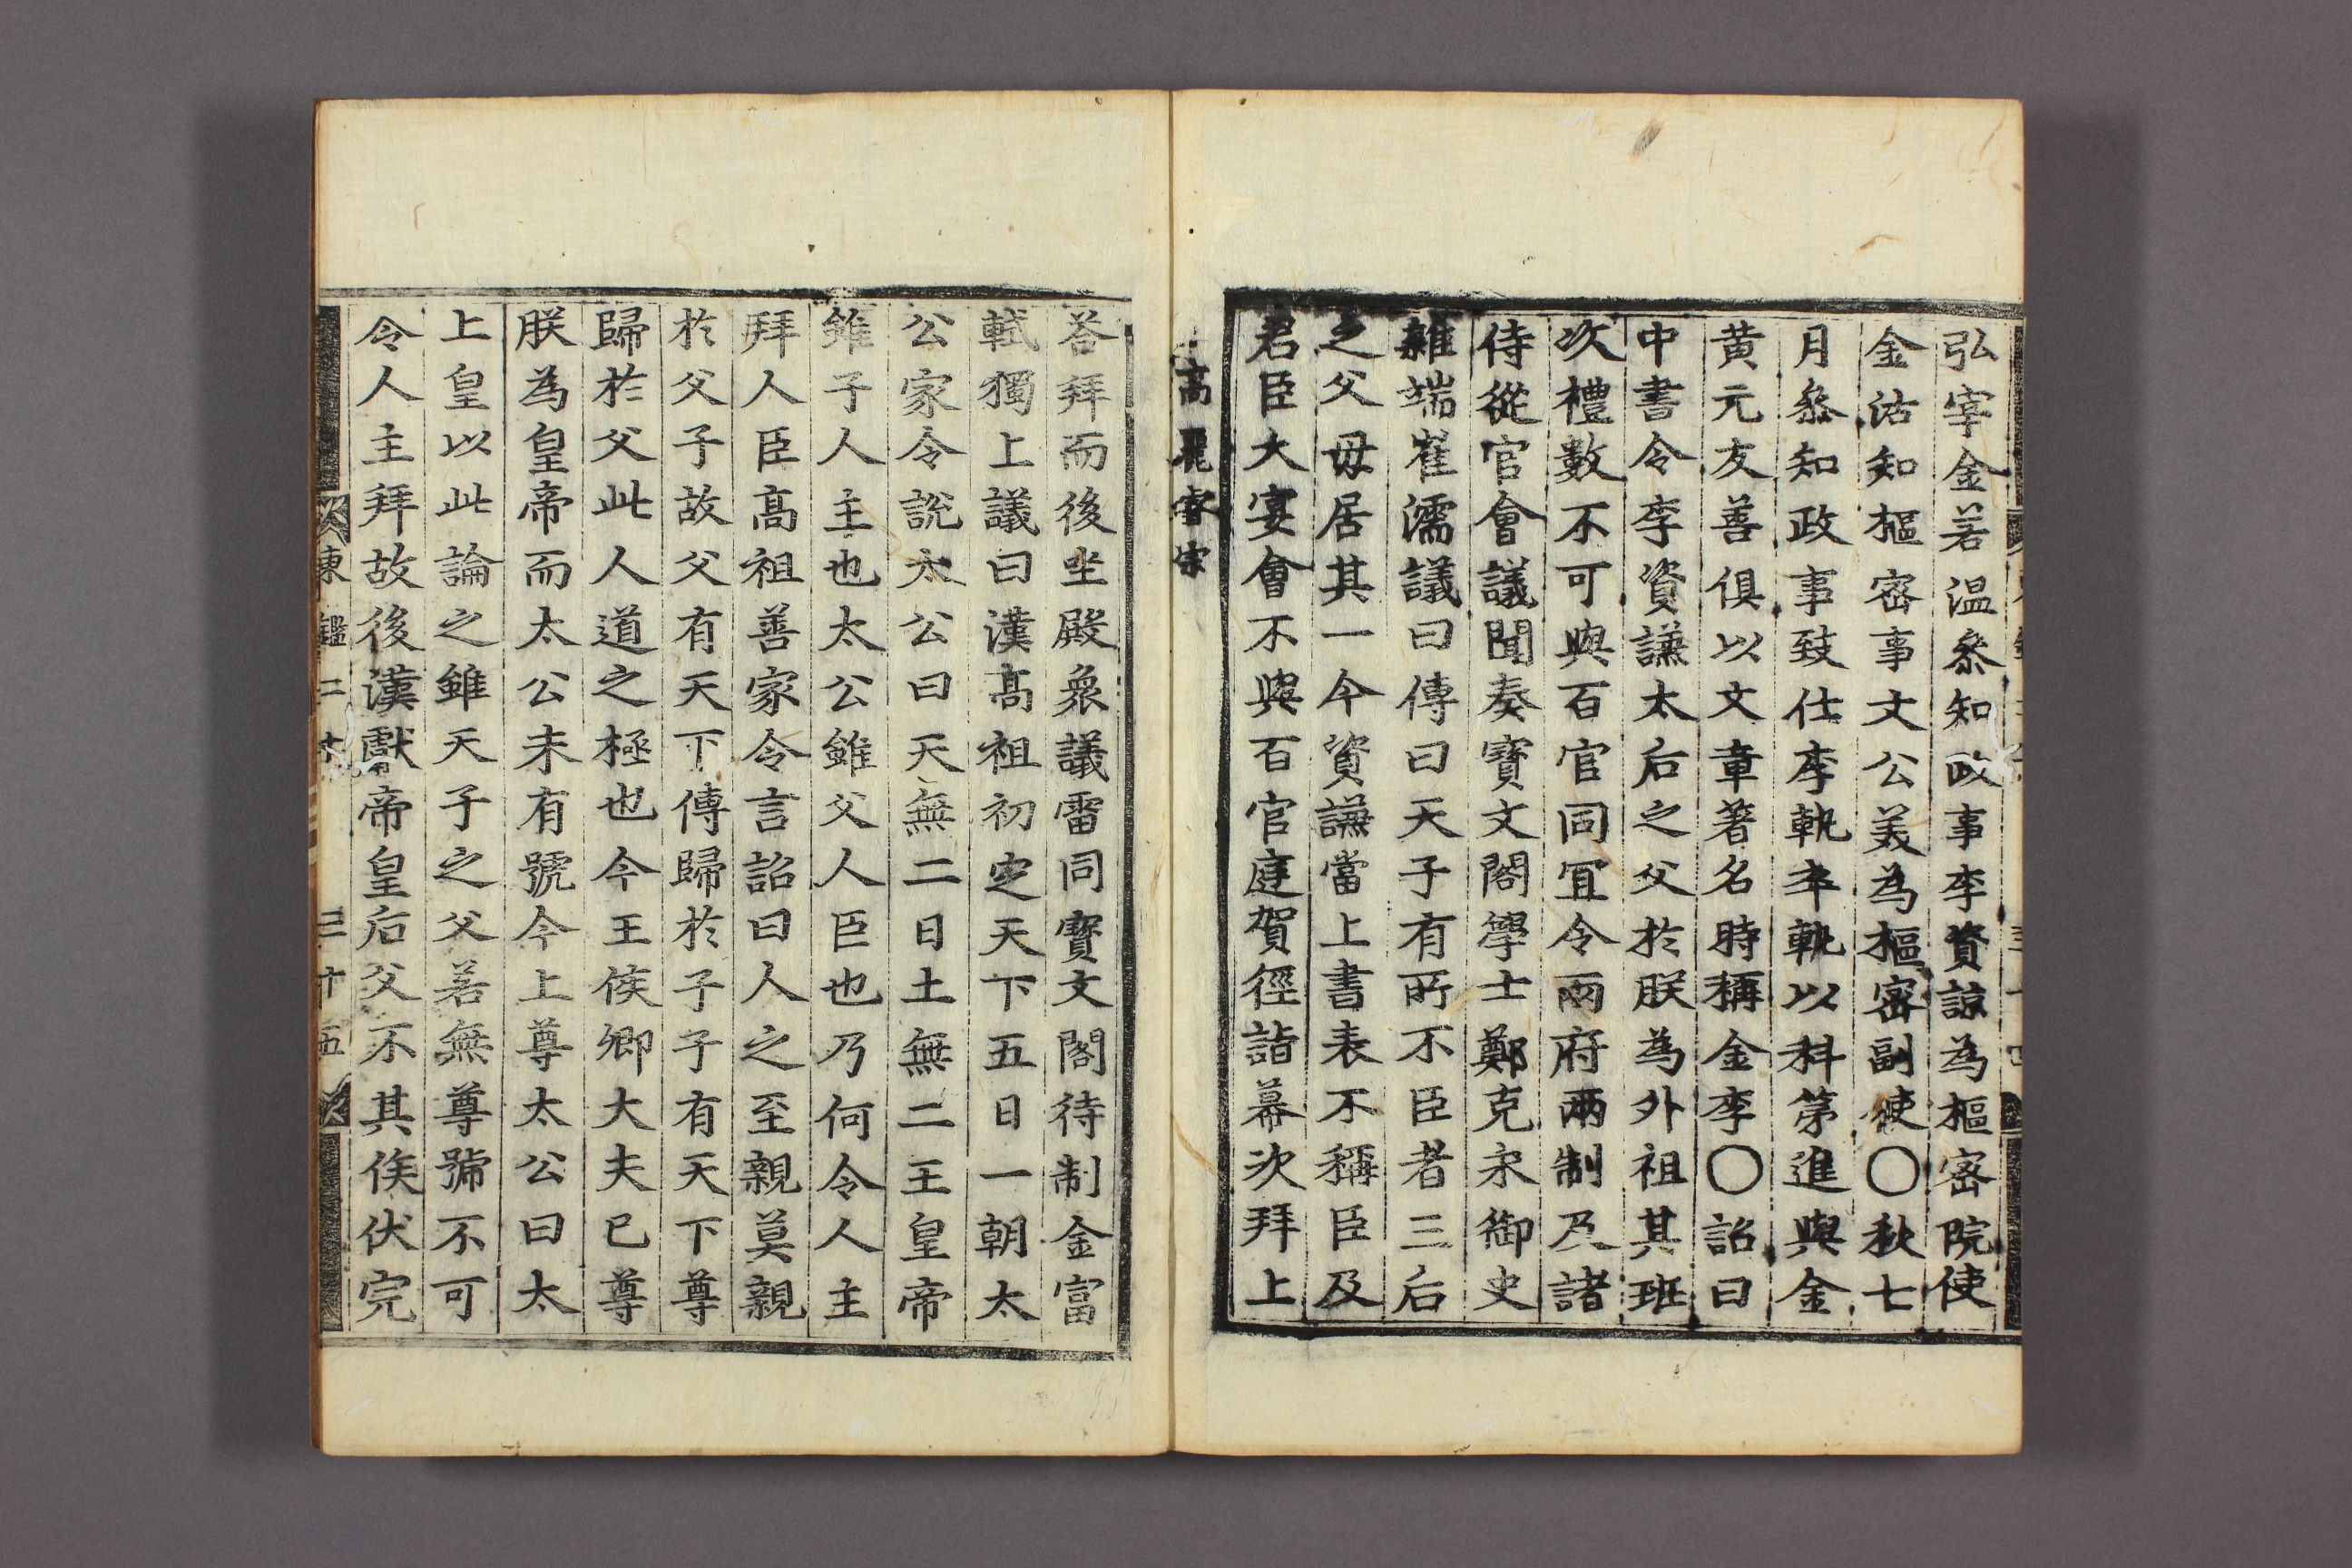 弘宰金若温叅知政事李資諒為樞密院使
金沽知樞密事文公美為樞密副使〇秋七
月叅知政事致仕李軌卒軌以科第進與金
黄元友善俱以文章著名時稱金李〇詔曰
中書令李資謙太后之父於朕為外祖其班
次禮數不可與百官同宜令兩府兩制及諸
侍從官會議聞奏寶文閣學士鄭克永御史
雜端崔濡議曰傳曰天子有所不臣者三后
之父母居其一今資謙當上書表不稱臣及
君臣大宴會不與百官庭賀徑詣幕次拜上
高麗睿宗
荅拜而後坐殿衆議雷同寳文閣待制金富
軾獨上議曰漢髙祖初定天下五日一朝太
公家令說太公曰天無二日土無二王皇帝
雖子人主也太公雖父人臣也乃何令人主
拜人臣髙祖善家令言詔曰人之至親莫親
於父子故父有天下傳歸於子子有天下尊
歸於父此人道之極也今王侯卿大夫已尊
朕為皇帝而太公未有號今上尊太公曰太
上皇以此論之雖天子之父若無尊號不可
令人主拜故後漢獻帝皇后父不其侯伏完
東鑑二十 三十五